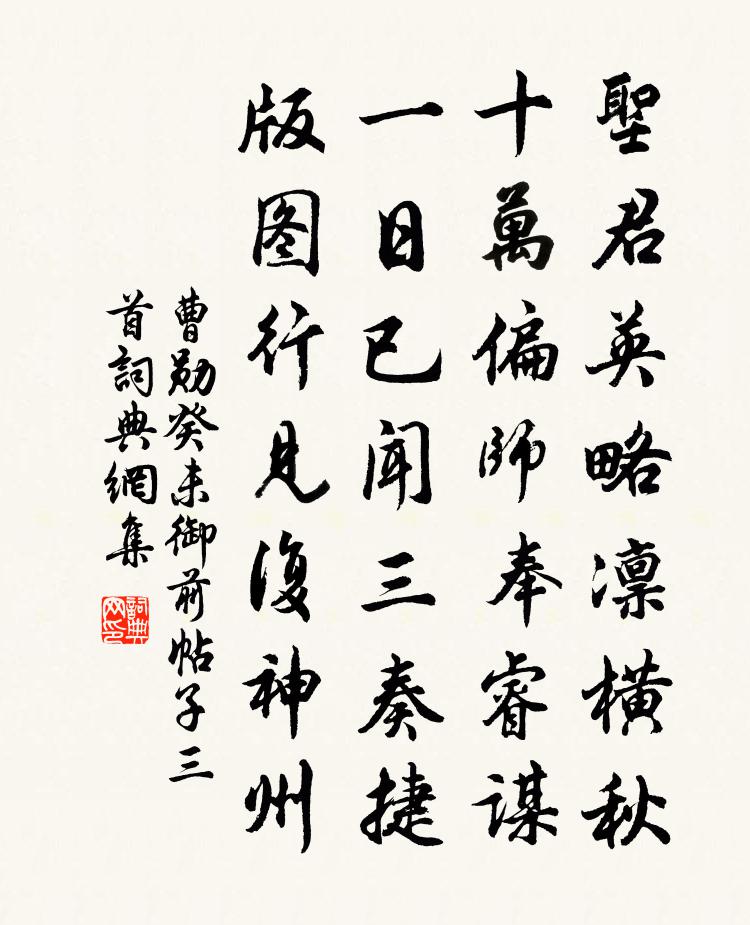 聖君英略凛橫秋
十萬偏師奉睿謀
一日已闻三奏捷
版图行見復神州
曹勛癸未御前帖子三
首詞典網集
詞典网印